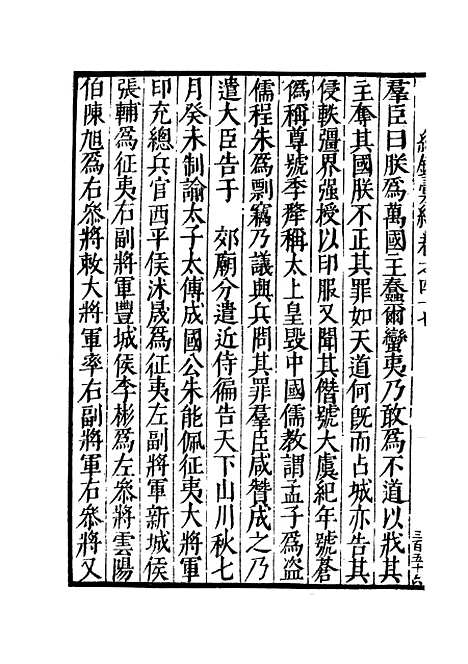 紀錄彙編卷之四十七
羣臣曰朕爲萬國主蠢爾蠻夷乃敢爲不道以戕其
主奪其國朕不正其罪如天道何旣而占城亦告其
侵軼彊界强授以印服又聞其僭號大虞紀年號蒼
僞稱尊號季犛稱太上皇毀中國儒教謂孟子爲盜
儒程朱爲剽竊乃議興兵問其罪羣臣咸贊成之乃
遣大臣告于　郊廟分遣近侍徧告天下山川秋七
月癸未制諭太子太傅成國公朱能佩征夷大將軍
印充總兵官西平侯沐晟爲征夷左副將軍新城侯
張輔爲征夷右副將軍豐城侯李彬爲左叅將雲陽
伯陳旭爲右叅將敕大將軍率右副將軍右叅將又